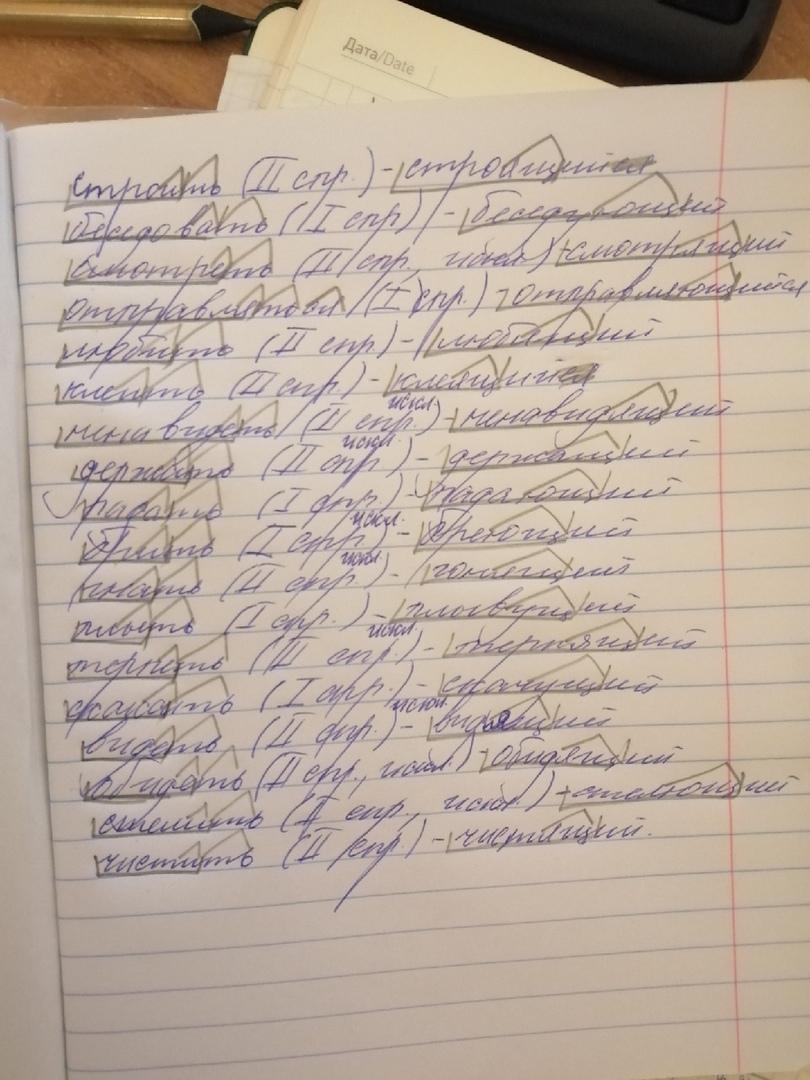 Дата/Date
строить (II спр.) - строящийся
беседовать (I спр) - беседующий
смотреть (II спр, искл.) - смотрящий
отправляться (I спр.) - отправляющийся
любить (II спр) - любящий
клеить (II спр) - клеящийся
ненавидеть (II спр. искл.) - ненавидящий
держать (II спр. искл.) - держащий
падать (I спр.) - падающий
брить (I спр. искл.) - бреющий
гнать (II спр. искл.) - гонящий
плыть (I спр.) - плывущий
терпеть (II спр. искл.) - терпящий
скакать (I спр.) - скачущий
видеть (II спр. искл.) - видящий
обидеть (II спр., искл.) - обидящий
стелить (I спр, искл.) - стелющий
чистить (II спр.) - чистящий.